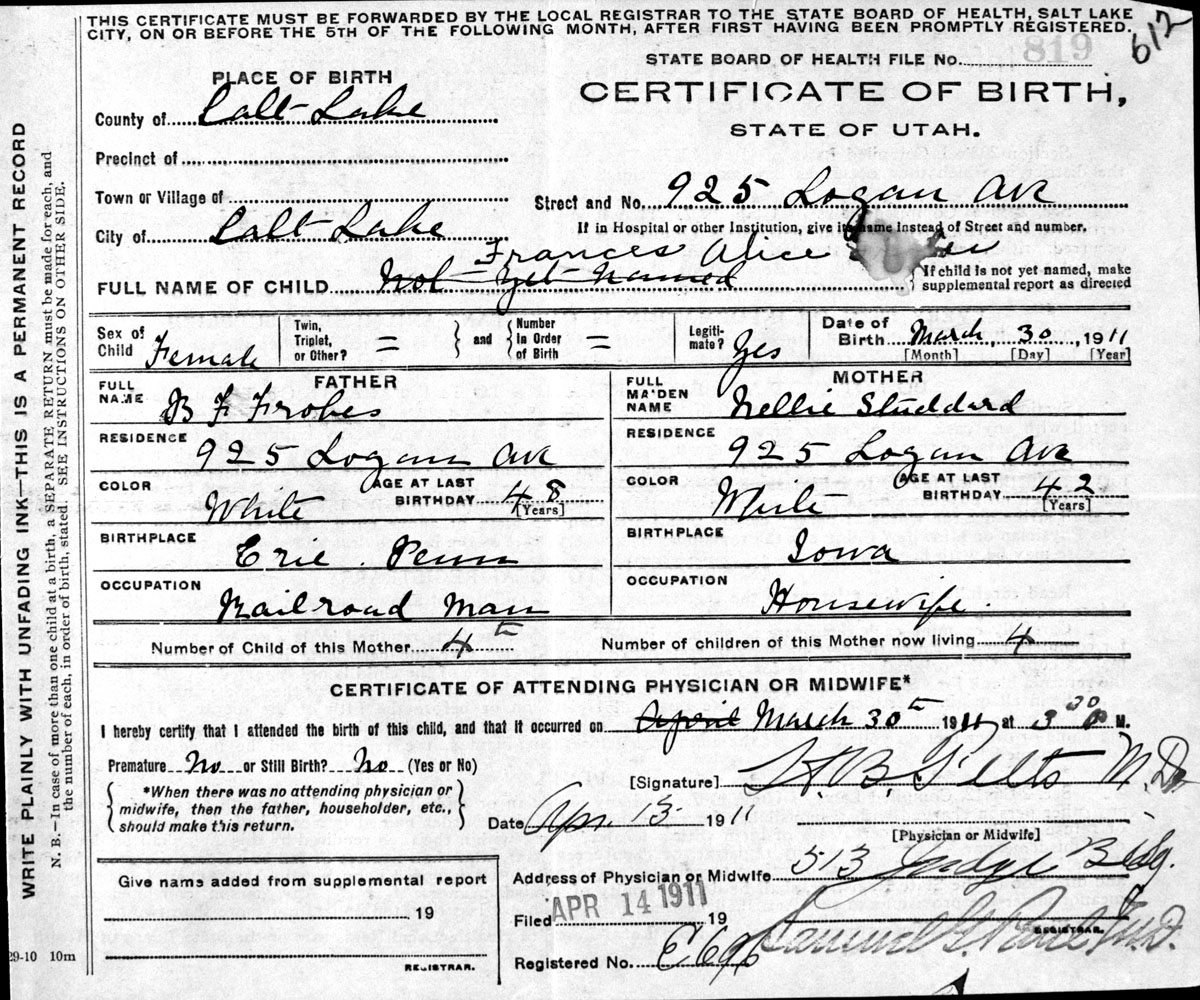 THIS CERTIFICATE MUST BE FORWARDED BY THE LOCAL REGISTRAR TO THE STATE BOARD OF HEALTH, SALT LAKE
CITY, ON OR BEFORE THE 5TH OF THE FOLLOWING MONTH, AFTER FIRST HAVING BEEN PROMPTLY REGISTERED.
612
STATE BOARD OF HEALTH FILE No. 819
CERTIFICATE OF BIRTH,
STATE OF UTAH.
PLACE OF BIRTH
County of Salt Lake
Precinct of
Town or Village of
City of Salt Lake
Street and No. 925 Logan Ave
If in Hospital or other Institution, give its name instead of Street and number.
Frances Alice
FULL NAME OF CHILD Not yet named
If child is not yet named, make
supplemental report as directed
Sex of Child Female
Twin, Triplet, or Other? =
and
Number In Order of Birth =
Legiti-mate? Yes
Date of Birth March 30, 1911
[Month] [Day] [Year]
FATHER
FULL NAME B F Frobes
RESIDENCE 925 Logan Ave
COLOR White
AGE AT LAST BIRTHDAY 48
[Years]
BIRTHPLACE Erie Penn
OCCUPATION Railroad Man
MOTHER
FULL MAIDEN NAME Nellie Studdard
RESIDENCE 925 Logan Ave
COLOR White
AGE AT LAST BIRTHDAY 42
[Years]
BIRTHPLACE Iowa
OCCUPATION Housewife.
Number of Child of this Mother 4th
Number of children of this Mother now living 4
CERTIFICATE OF ATTENDING PHYSICIAN OR MIDWIFE*
I hereby certify that I attended the birth of this child, and that it occurred on April March 30th 1911 at 3 30 P M.
Premature No or Still Birth? No (Yes or No)
*When there was no attending physician or
midwife, then the father, householder, etc.,
should make this return.
[Signature] M.D.
Date Apr. 13 1911
[Physician or Midwife]
Address of Physician or Midwife 513 Judge Bldg.
Give name added from supplemental report
19
REGISTRAR.
Filed APR 14 1911 19
REGISTRAR.
Registered No.
29-10 10m
WRITE PLAINLY WITH UNFADING INK—THIS IS A PERMANENT RECORD
N. B.—In case of more than one child at a birth, a SEPARATE RETURN must be made for each, and
the number of each, in order of birth, stated. SEE INSTRUCTIONS ON OTHER SIDE.